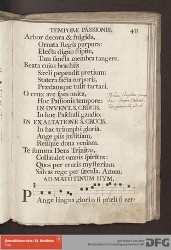 TEMPORE PASSIONIS.
Arbor decora & fulgida,
Ornata Regis purpura:
Electa digno stipite,
Tam sancta membra tangere.
Beata cuius brachiis
Secli pependit pretium:
Statera facta corporis,
Prædamque tulit tartari.
O crux ave spes unica,
Hoc Passionis tempore:
IN INVENT. S. CRUCIS.
In hoc Paschali gaudio.
IN EXALTATIONE S. CRUCIS.
In hac triumphi gloria.
Auge piis iustitiam,
Reisque dona veniam.
Te summa Deus Trinitas,
Collaudet omnis spiritus:
Quos per crucis mysterium
Salvas rege per sæcula. Amen.
AD MATUTINUM HYM.
Pange lingua glorio si prœli si cer-
DFG